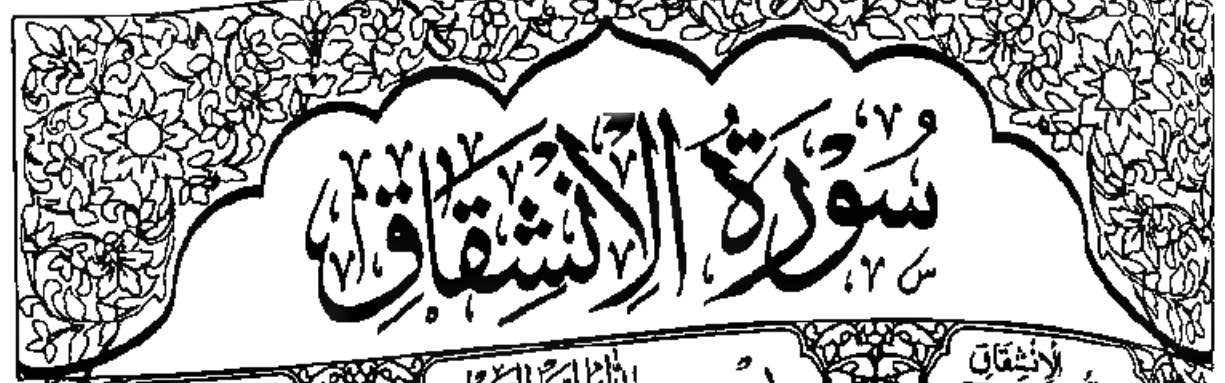 سُوْرَةُ الْاِنْشِقَاقِ
الْاِنْشِقَاقِ